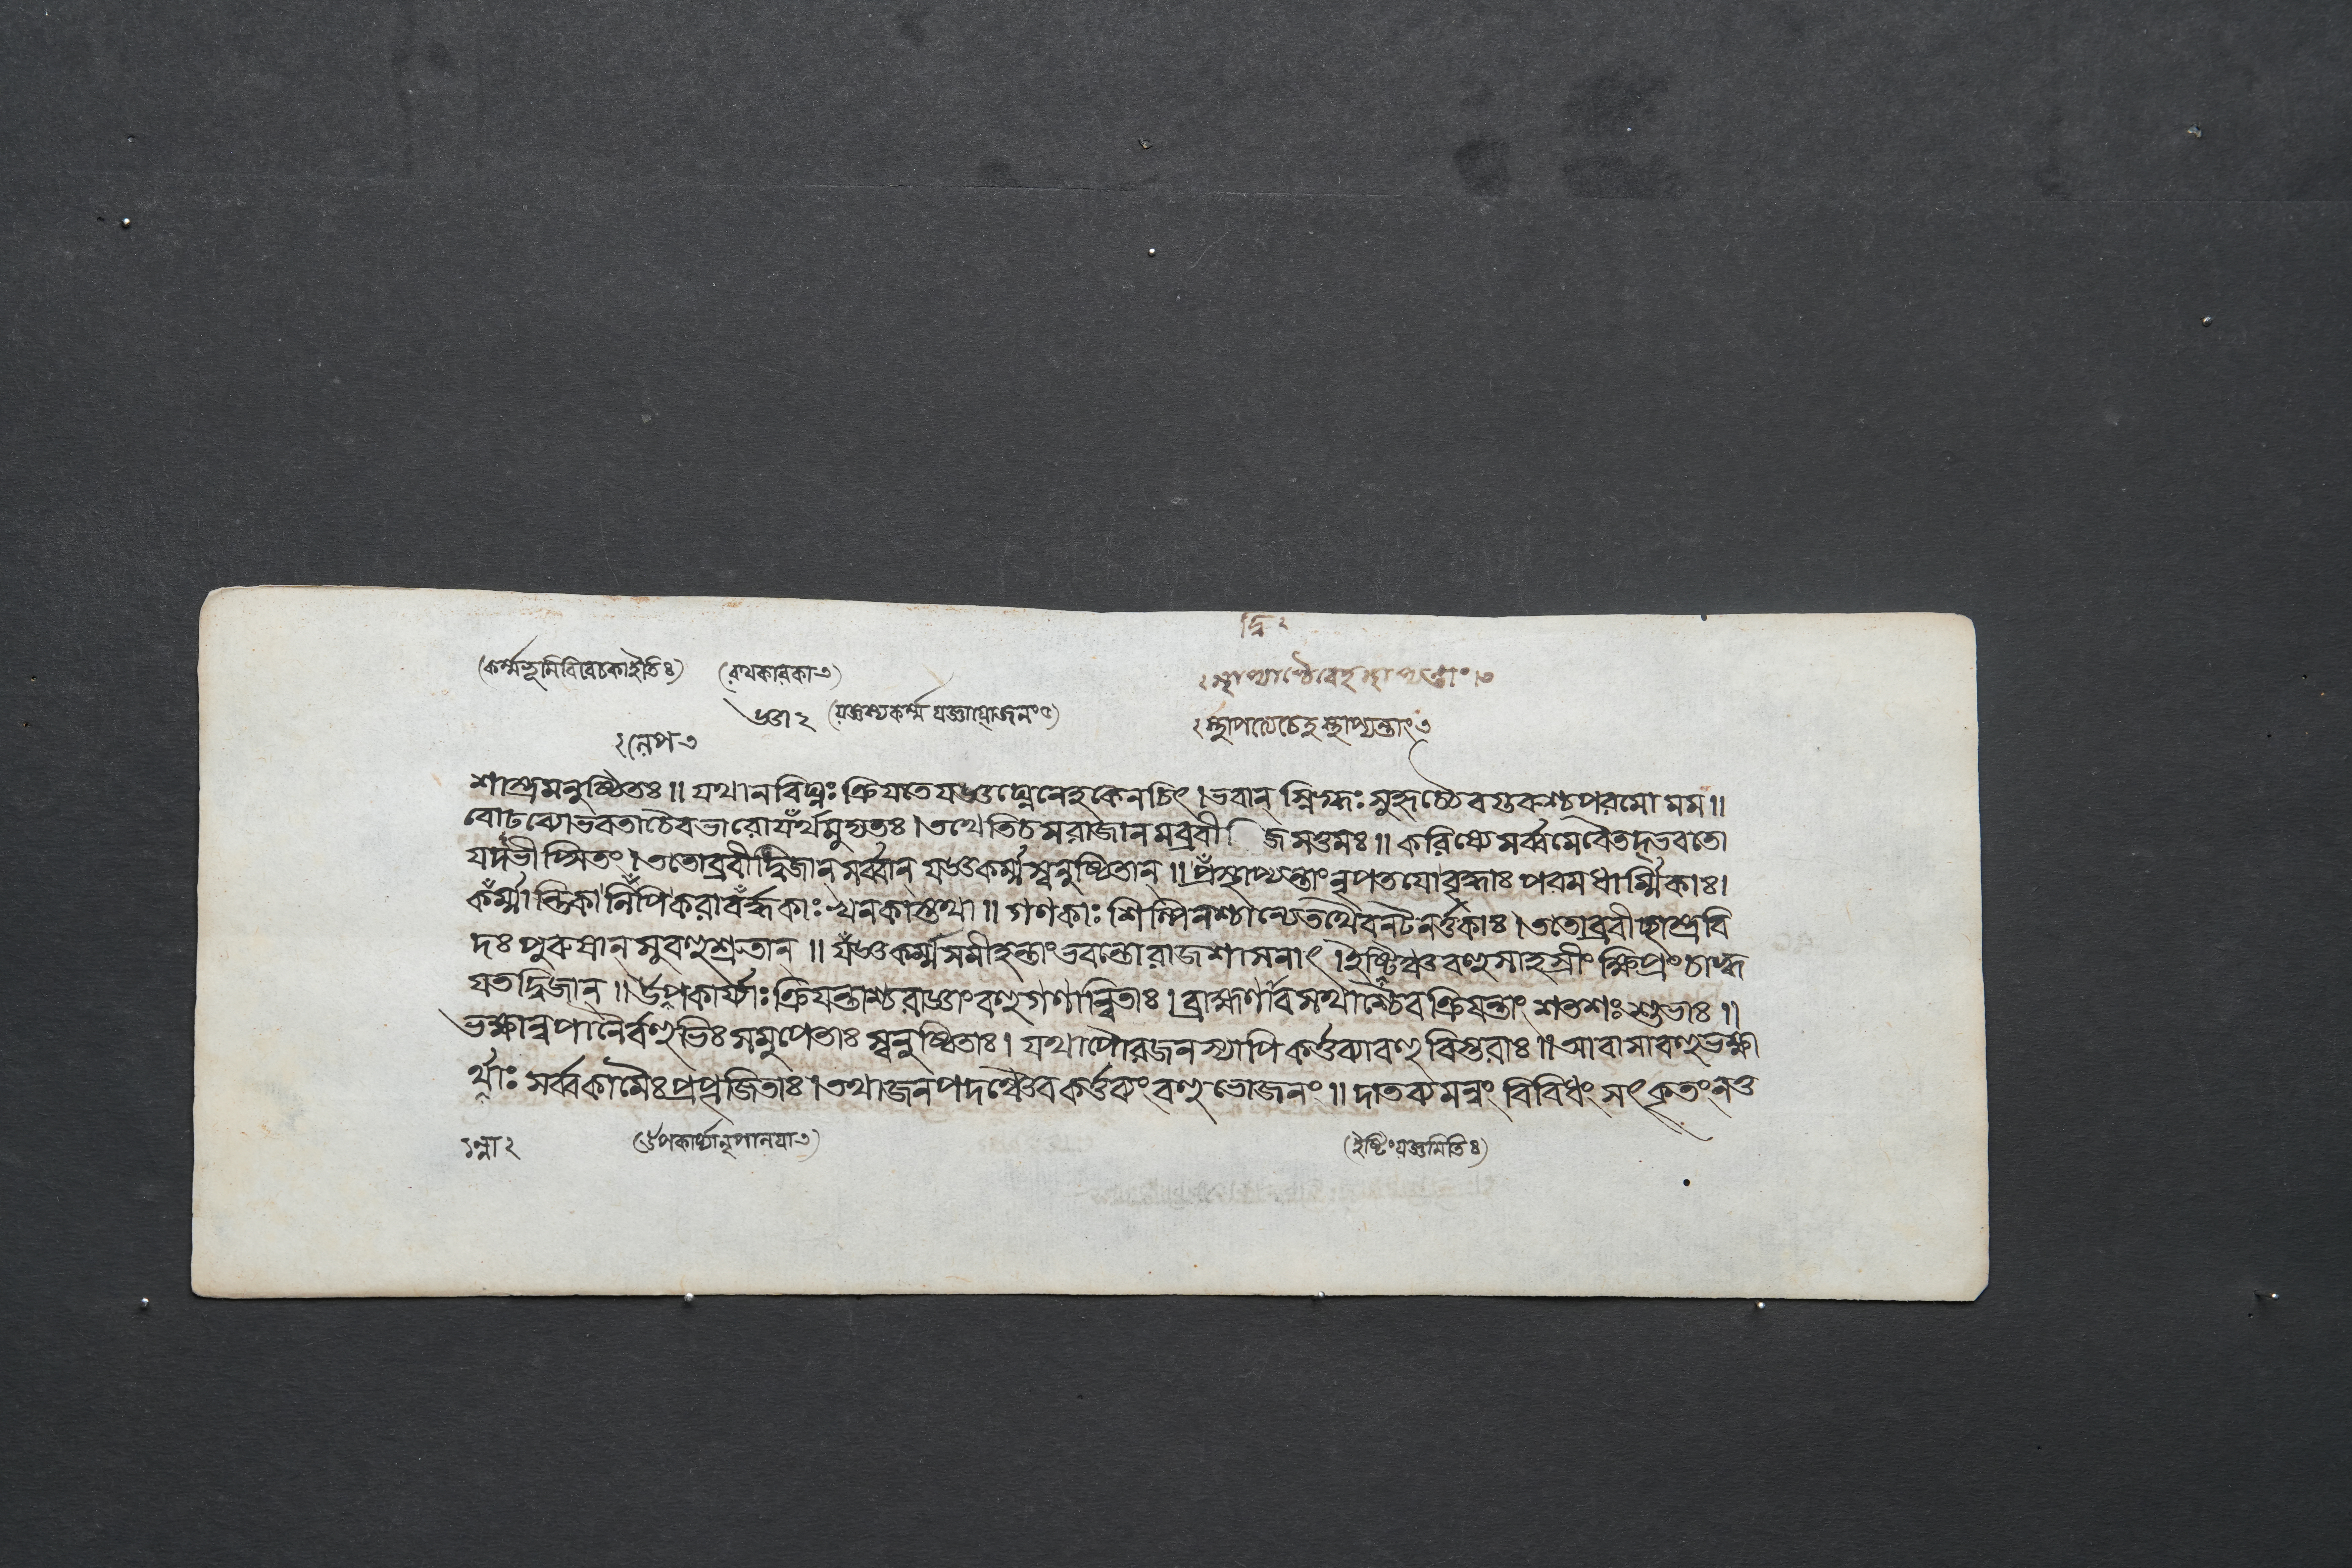 দ্বি ২
(কর্ম্মভূমিবিবেচকোইতিঃ) (রথকারকা৩) ২ স্থাপ্যতাং৩
(যজ্ঞস্যকর্ম্ম যজ্ঞায়োজনং৫) ২স্থাপত্যেচেহস্থাপ্যন্তাং৩
শাস্ত্রমনুষ্ঠিতঃ॥ যথানবিঘ্নঃ ক্রিযতে যজ্ঞঘ্নেনেহকেনচিৎ। ভবান্ স্নিগ্ধঃ সুহৃচ্চৈব গুরুশ্চপরমো মম॥
বোঢব্যোভবতাচৈবভারোযঁর্থমুদ্যতঃ। তথেতিচসরাজানমব্রবী জসত্তমঃ॥ করিষ্যে সর্ব্বমেবৈতদ্ভবতো
যদভীপ্সিতং। ততোব্রবীদ্দ্বিজান্ সর্ব্বান্ যজ্ঞকর্ম্মস্বনুষ্ঠিতান্॥ প্রঁস্থাপ্যন্তাং নৃপতযোবৃদ্ধাঃ পরমধার্ম্মিকাঃ।
কঁর্ম্মান্তিকা র্নিঁপিকরাবঁর্দ্ধকাঃ খনকাস্তথা॥ গণকাঃ শিল্পিনশ্চান্যেতথৈবনটনর্ত্তকাঃ। ততোব্রবীচ্ছাস্ত্রবি
দঃ পুরুষান্ সুবহুশ্রুতান্॥ যঁজ্ঞকর্ম্মসমীহন্তাংভবন্তোরাজশাসনাৎ। ইষ্টিঞ্চবহুসাহস্রীং ক্ষিপ্রং চাহ্ব
যতদ্বিজান্॥ উপকার্য্যাঃ ক্রিযন্তাশ্চরাজ্ঞাংবহুগণান্বিতাঃ। ব্রাহ্মণাবসথাশ্চৈবক্রিযন্তাং শতশঃ শুভাঃ॥
ভক্ষান্নপানৈর্বহুভিঃ সমুপেতাঃ স্বনুষ্ঠিতাঃ। যথাপৌরজনস্যাপি কর্ত্তব্যাবহুবিস্তরাঃ॥ আবাসাবহুভক্ষা
র্থাঃ সর্ব্বকামৈঃ প্রপূজিতাঃ। তথাজনপদঞ্চৈবকর্ত্তব্যং বহুভোজনং॥ দাতব্যমন্নং বিবিধং সৎকৃতংনতু
(উপকার্য্যানৃপালযা৩) (ইষ্টিংযজ্ঞমিতিঃ)